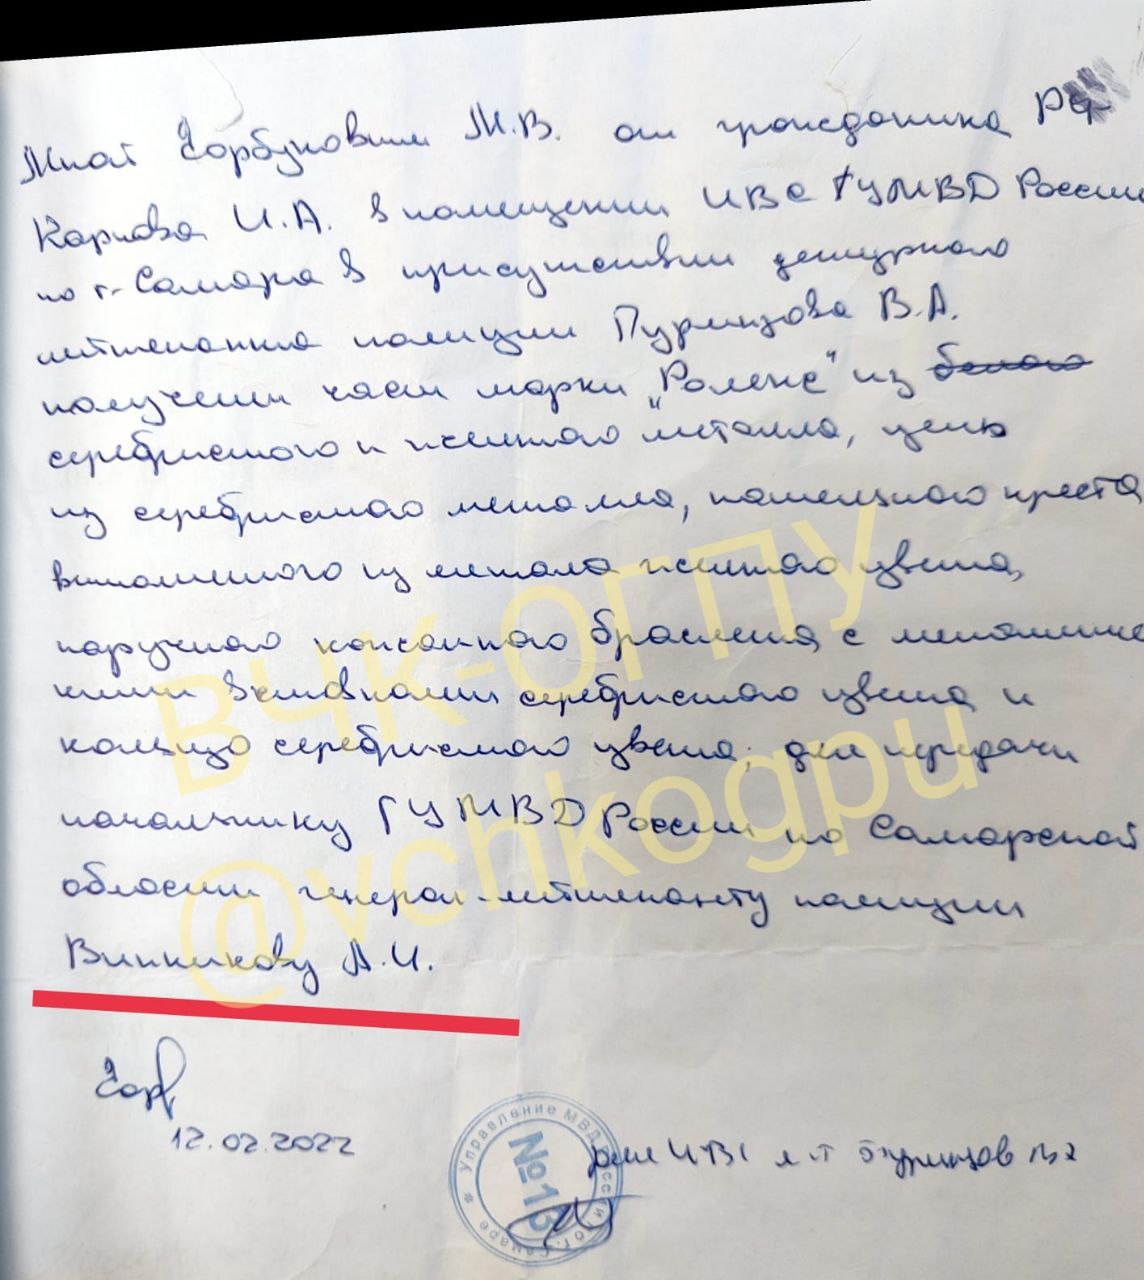 Мной Горбуновым М.В. от гражданина РФ
Карпова И.А. в помещении ИВС ГУ МВД России
по г. Самара в присутствии дежурного
лейтенанта полиции Пурынзова В.А.
получены часы марки "Ролекс" из белого
серебристого и желтого металла, цепь
из серебристого металла, нательного креста
выполненного из метала желтого цвета,
наручного кожанного браслета с металличес
кими вставками серебристого цвета и
кольцо серебристого цвета, для передачи
начальнику ГУ МВД России по Самарской
области генерал-лейтенанту полиции
Винникову А.И.
ВЧК-ОГПУ
@vchkogpu
12.02.2022
ИВС л-т
Управление МВД России по г. Самаре
№18